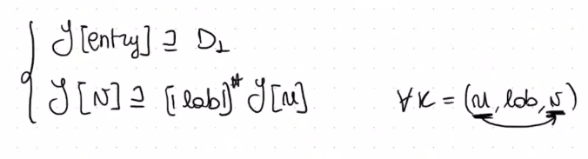 I[entry] ⊒ D⊥
I[v] ⊒ [|lab|]# I[u] ∀k = (u, lab, v)